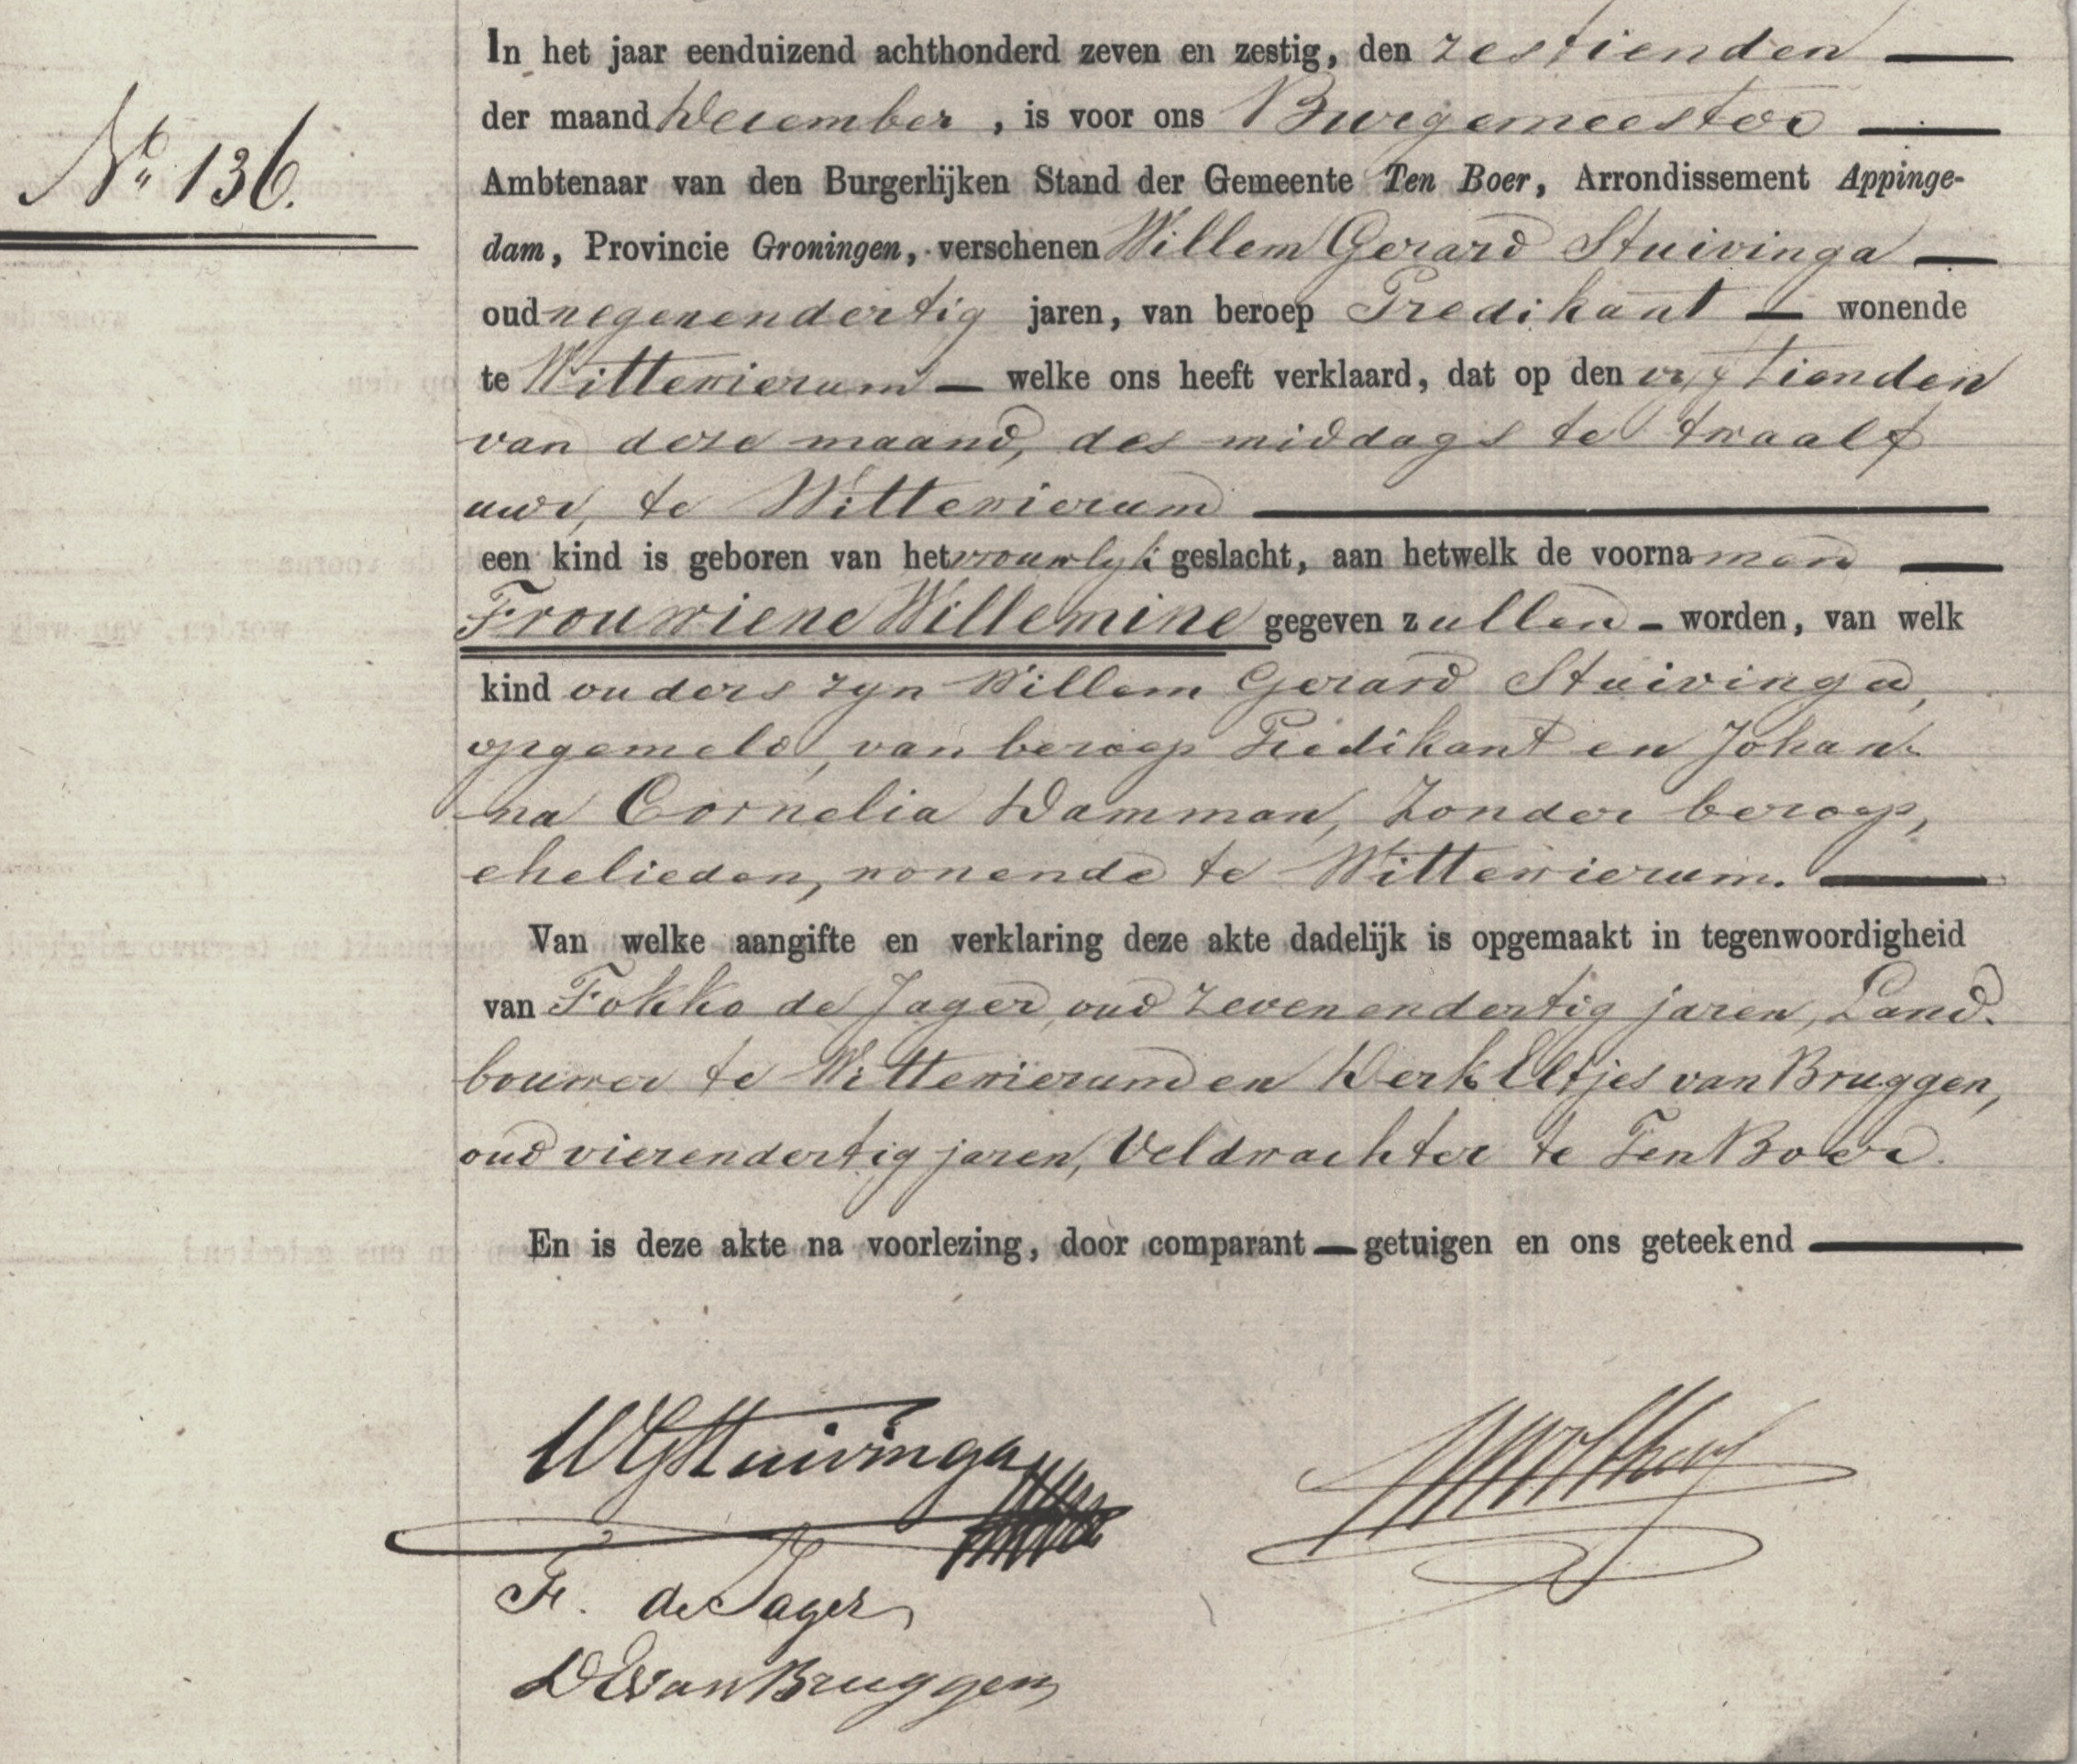 In het jaar eenduizend achthonderd zeven en zestig, den zestienden
der maand December, is voor ons Burgemeester
No 136.
Ambtenaar van den Burgerlijken Stand der Gemeente Ten Boer, Arrondissement Appinge-
dam, Provincie Groningen, verschenen Willem Gerard Stuivinga
oud negenendertig jaren, van beroep Predikant wonende
te Wittewierum welke ons heeft verklaard, dat op den vijftienden
van deze maand, des middags te twaalf
uur, te Wittewierum
een kind is geboren van het vrouwlyk geslacht, aan hetwelk de voornamen
Frouwiene Willemine gegeven zullen worden, van welk
kind ouders zyn Willem Gerard Stuivinga,
opgemeld, van beroep Predikant en Johan-
na Cornelia Damman, zonder beroep,
ehelieden, wonende te Wittewierum.
Van welke aangifte en verklaring deze akte dadelijk is opgemaakt in tegenwoordigheid
van Fokko de Jager, oud zevenendertig jaren, Land-
bouwer te Wittewierum en Derk Eltjes van Bruggen,
oud vierendertig jaren, Veldwachter te Ten Boer.
En is deze akte na voorlezing, door comparant getuigen en ons geteekend
WGStuivinga
F. de Jager
DEvanBruggen